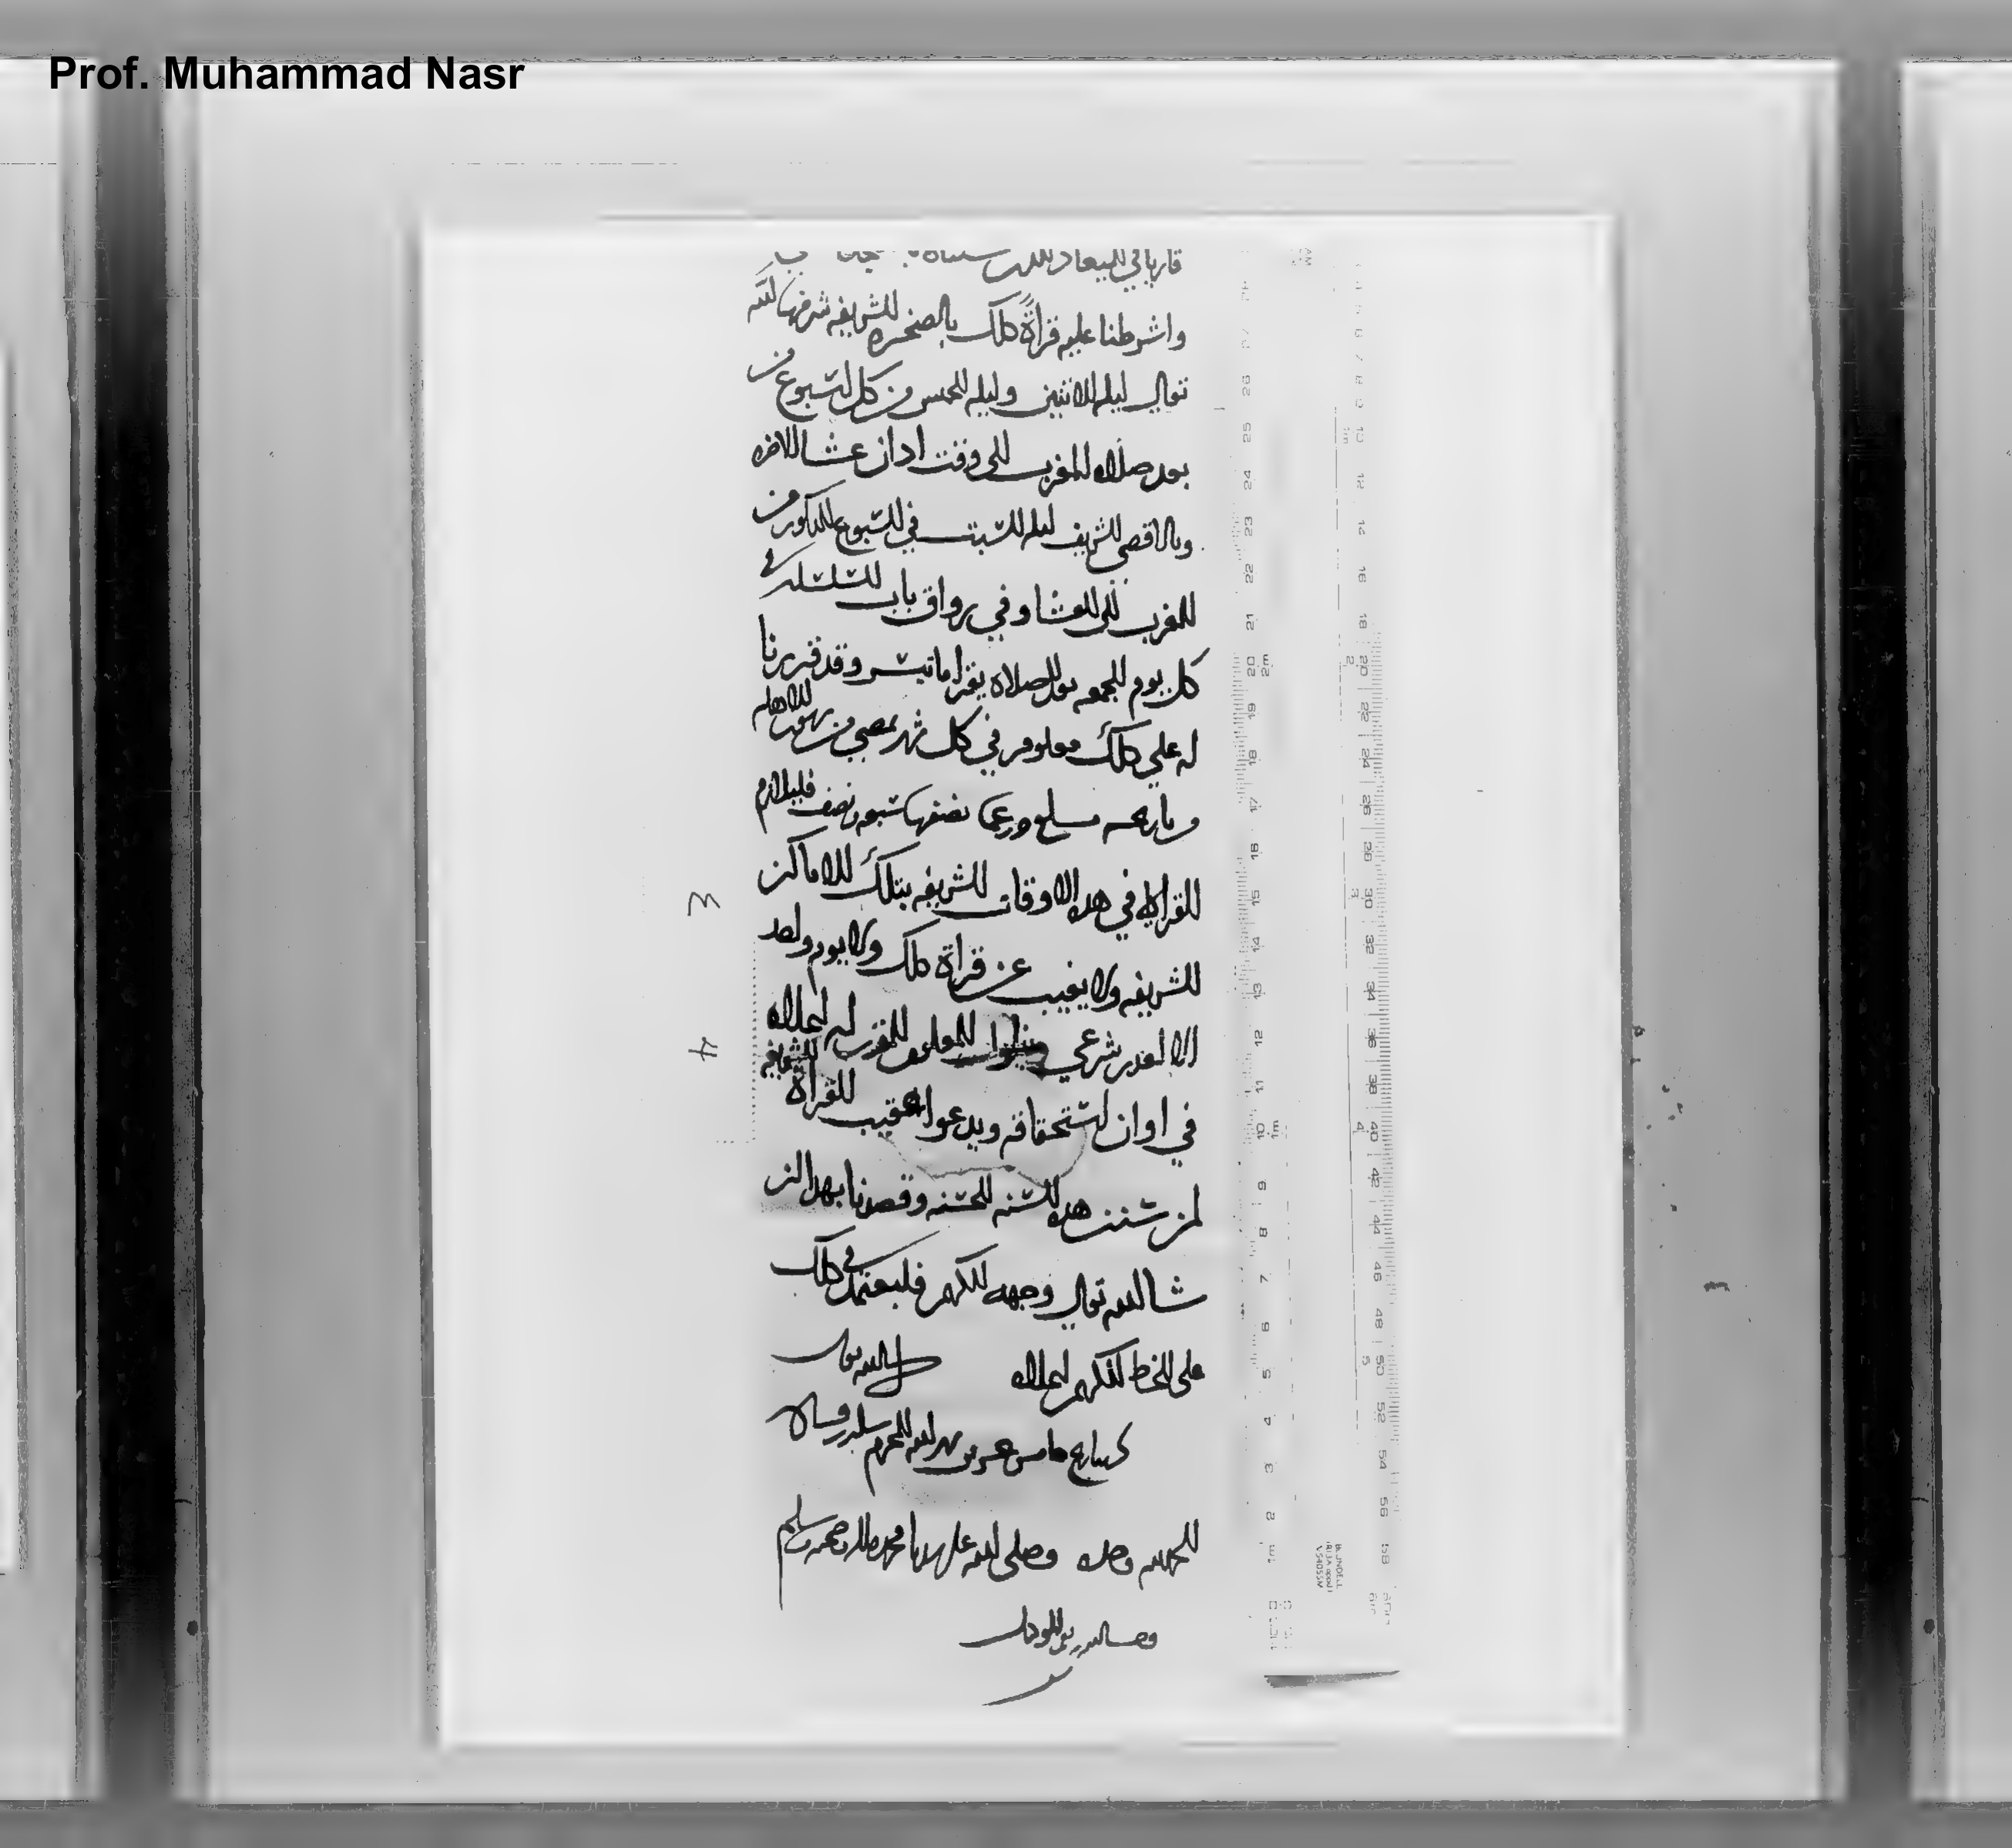 Prof. Muhammad Nasr
قاريا في الميعاد
واشرطنا عليه قراة دلك بالصخره الشريفه شرفها الله
تعالى ليله الاثنين وليله الخميس من كل اسبوع من
بعد صلاه المغرب الى وقت ادان عشا الاخره
وبالاقصى الشريف ليله السبت في السبوع المدكور من
المغرب الى العشا وفي رواق باب السلسله في
كل يوم الجمعه بعد الصلاه يقرا ما تيسر وقد قررنا
له على دلك معلوم في كل شهر يمضي من شهور الاهله
نصفها سبعه ونصف فليلازم
القراه في هده الاوقات الشريفه بتلك الاماكن
الشريفه ولا يغيب عن قراة دلك ولا يوم واحد
الا لعدر شرعي المعلوم المقرر له اعلاه
في اوان استحقاقه ويدعوا عقيب القراة الشريفه
لمن سنن هده السنه الحسنه وقصدنا بهدا ان
شا الله تعالى وجهه الكريم فليعتمد في دلك
على الخط الكريم اعلاه ان شا الله تعالى
خامس عشرين شهر الله المحرم
الحمد لله وحده وصلى الله على سيدنا محمد واله وصحبه وسلم
وحسبنا الله ونعم الوكيل
3
4